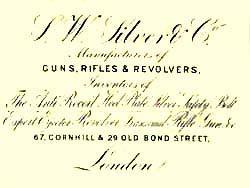 S. W. Silver & Co.
Manufacturers of
GUNS, RIFLES & REVOLVERS,
Inventors of
The Anti Recoil Heel Plate Silver Safety Bolt
Expert Ejector Revolver Transvaal Rifle Gun &c
67, CORNHILL & 29 OLD BOND STREET,
London